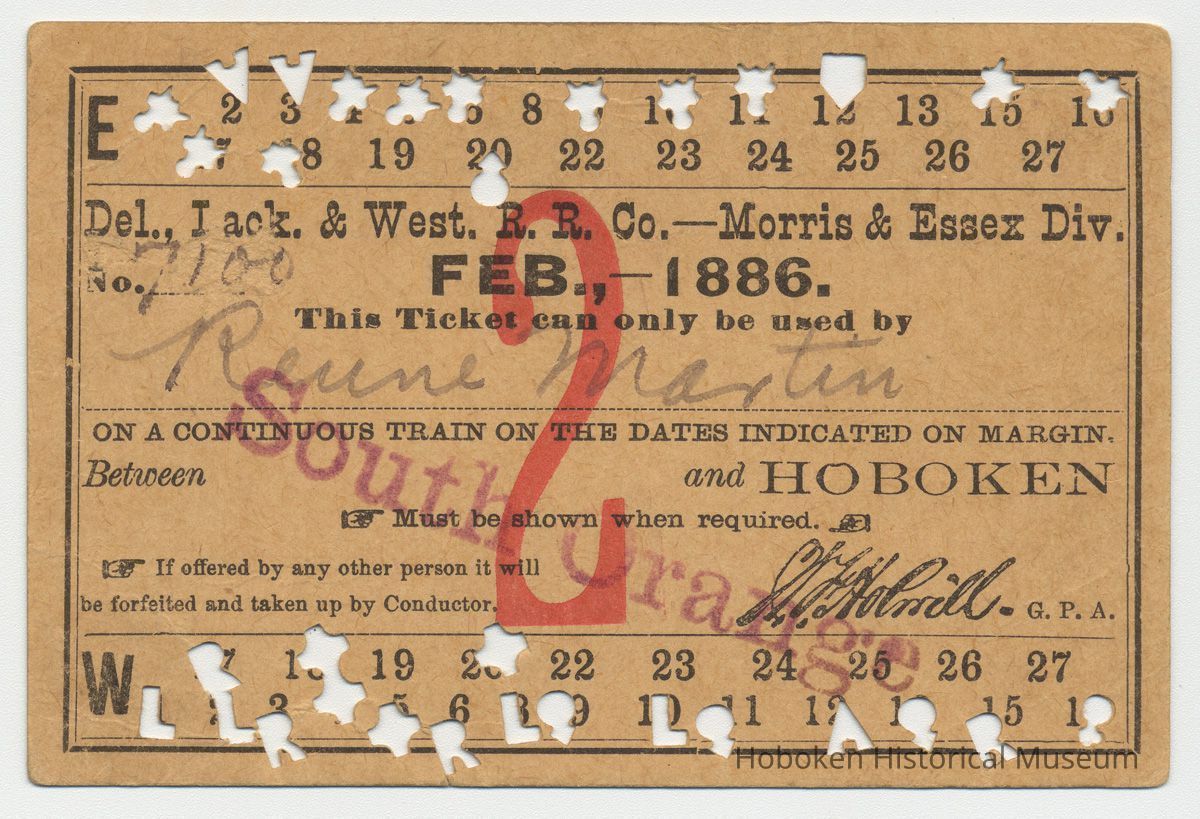 E 2 3 4 6 8 10 11 12 13 15 16
17 18 19 20 22 23 24 25 26 27
Del., Lack. & West. R. R. Co.—Morris & Essex Div.
No. 7100 FEB.,—1886.
This Ticket can only be used by
Martin
2
ON A CONTINUOUS TRAIN ON THE DATES INDICATED ON MARGIN.
Between and HOBOKEN
South Orange
☞ Must be shown when required. ☜
☞ If offered by any other person it will
be forfeited and taken up by Conductor.
G. P. A.
W 19 20 22 23 24 25 26 27
2 3 5 6 8 9 10 11 12 15
Hoboken Historical Museum